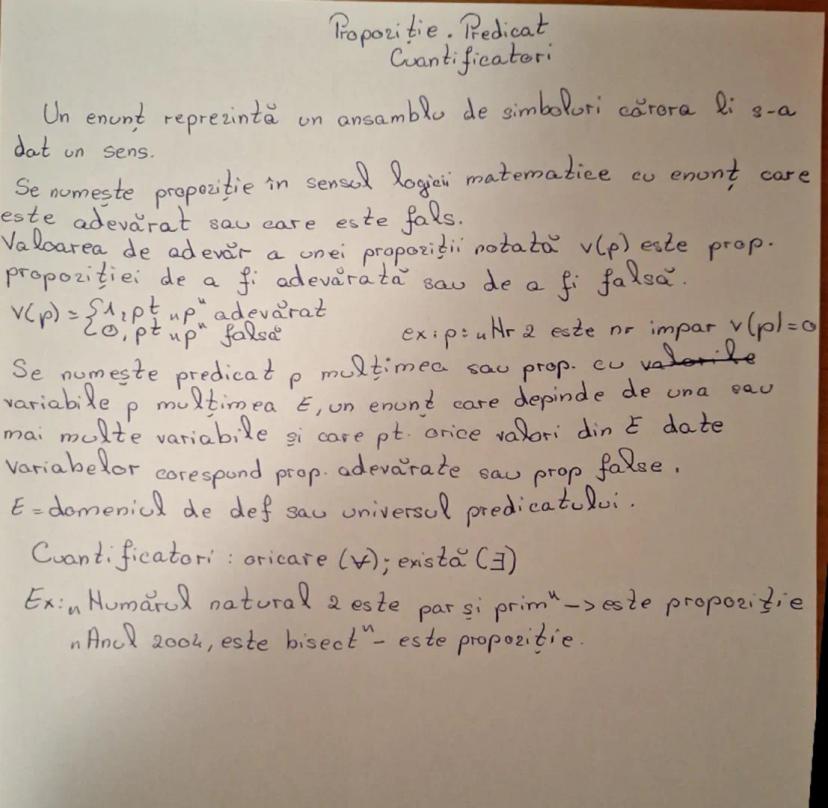 Propoziție. Predicat
Cuantificatori
Un enunț reprezintă un ansamblu de simboluri cărora li s-a
dat un sens.
Se numește propoziție în sensul logicii matematice cu enunț care
este adevărat sau care este fals.
Valoarea de adevăr a unei propoziții notată v(p) este prop.
propoziției de a fi adevărată sau de a fi falsă.
v(p) = {1, pt „p" adevărat
{0, pt „p" falsă ex: p: „Nr 2 este nr impar v(p)=0
Se numește predicat p mulțimea sau prop. cu valorile
variabile p mulțimea E, un enunț care depinde de una sau
mai multe variabile și care pt. orice valori din E date
variabelor corespund prop. adevărate sau prop false.
E = domeniul de def sau universul predicatului.
Cuantificatori: oricare (∀); există (∃)
Ex: „Numărul natural 2 este par și prim" -> este propoziție
„Anul 2004, este bisect" - este propoziție.